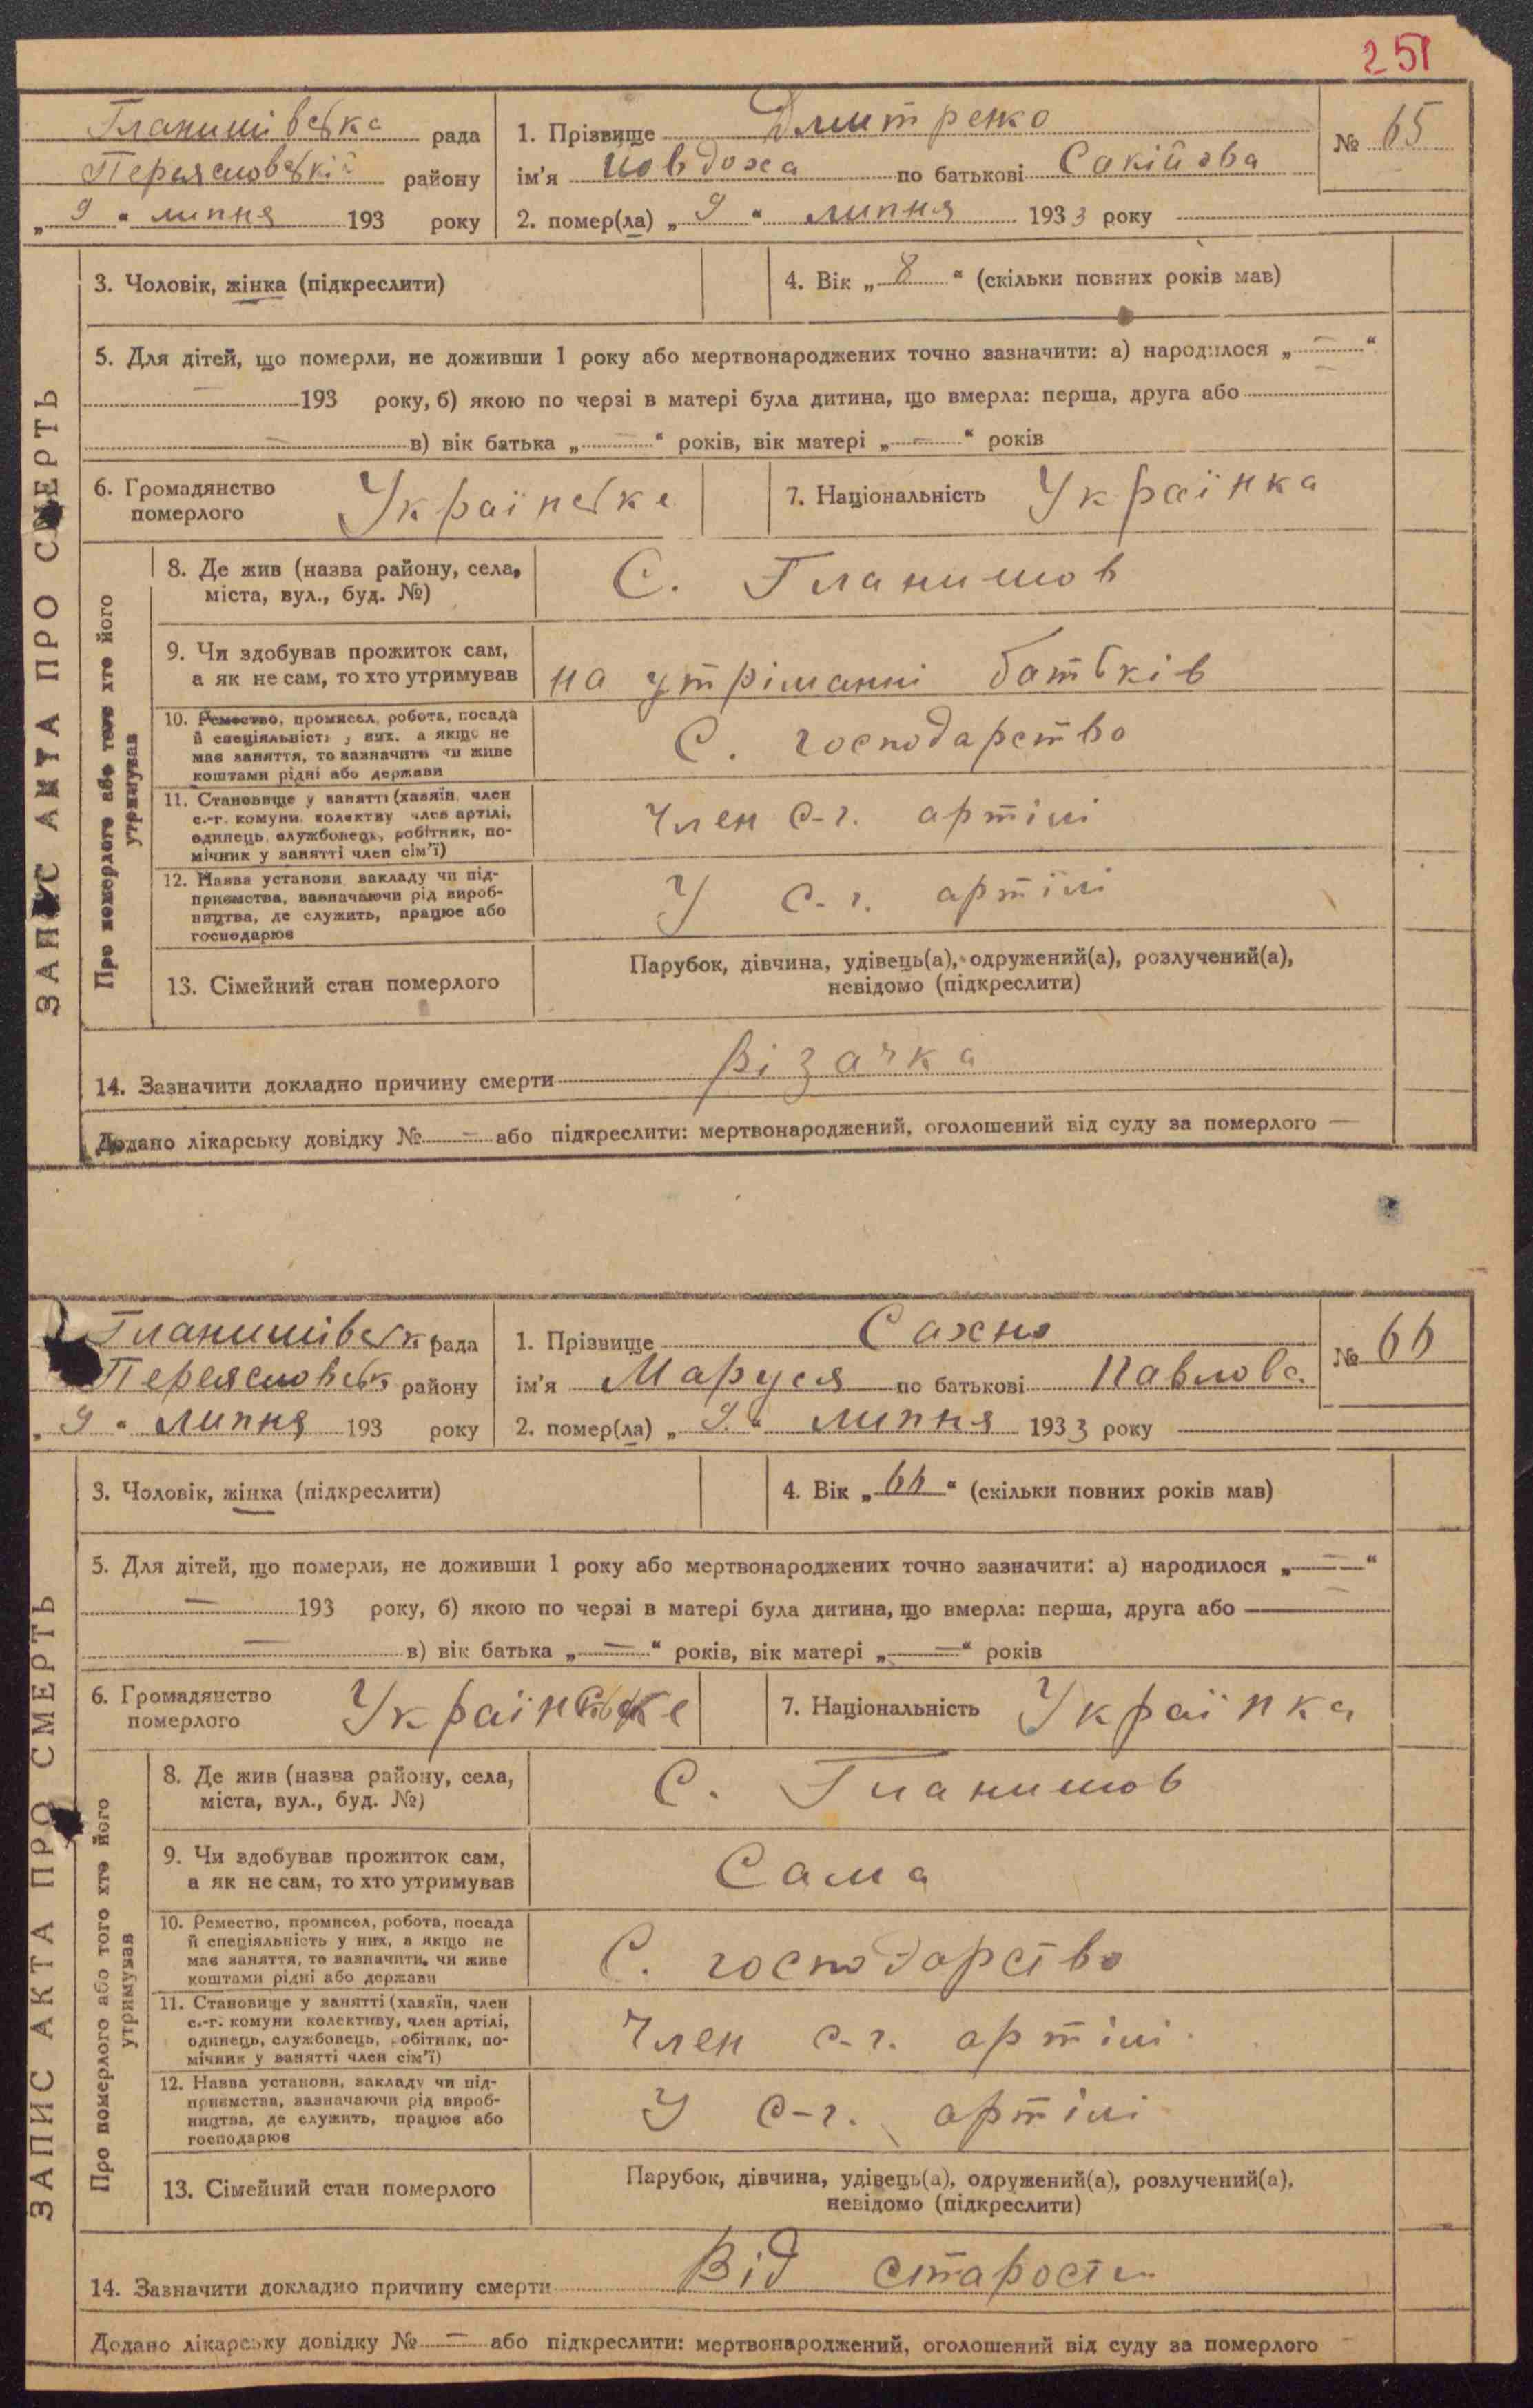 251
Гланишівська рада
Переяславській району
„ 9 “ липня 193 року
1. Прізвище Дмитренко
ім'я Йовдоха по батькові
2. помер(ла) „ 9 “ липня 1933 року
№ 65
ЗАПИС АКТА ПРО СМЕРТЬ
3. Чоловік, жінка (підкреслити)
4. Вік „ 8 “ (скільки повних років мав)
5. Для дітей, що померли, не доживши 1 року або мертвонароджених точно зазначити: а) народилося „ — “
— 193 року, б) якою по черзі в матері була дитина, що вмерла: перша, друга або —
— в) вік батька „ — “ років, вік матері „ — “ років
6. Громадянство
померлого
Українське
7. Національність Українка
Про померлого або того хто його
утримував
8. Де жив (назва району, села,
міста, вул., буд. №)
С. Гланишов
9. Чи здобував прожиток сам,
а як не сам, то хто утримував
на утріманні батьків
10. Ремество, промисел, робота, посада
й спеціяльність у них, а якщо не
має заняття, то зазначити чи живе
коштами рідні або держави
С. господарство
11. Становище у занятті (хазяїн, член
с.-г. комуни, колективу член артілі,
одинець, службовець, робітник, по-
мічник у занятті член сім'ї)
Член с-г. артілі
12. Назва установи, закладу чи під-
приємства, зазначаючи рід вироб-
ництва, де служить, працює або
господарює
У с-г. артілі
13. Сімейний стан померлого
Парубок, дівчина, удівець(а), одружений(а), розлучений(а),
невідомо (підкреслити)
14. Зазначити докладно причину смерти різачка
Додано лікарську довідку № — або підкреслити: мертвонароджений, оголошений від суду за померлого —
Гланишівськ рада
Переяславськ району
„ 9 “ липня 193 року
1. Прізвище Сахно
ім'я Маруся по батькові Павлова
2. помер(ла) „ 9 “ липня 1933 року
№ 66
ЗАПИС АКТА ПРО СМЕРТЬ
3. Чоловік, жінка (підкреслити)
4. Вік „ 66 “ (скільки повних років мав)
5. Для дітей, що померли, не доживши 1 року або мертвонароджених точно зазначити: а) народилося „ — “
— 193 року, б) якою по черзі в матері була дитина, що вмерла: перша, друга або —
— в) вік батька „ — “ років, вік матері „ — “ років
6. Громадянство
померлого
Українське
7. Національність Українка
Про померлого або того хто його
утримував
8. Де жив (назва району, села,
міста, вул., буд. №)
С. Гланишов
9. Чи здобував прожиток сам,
а як не сам, то хто утримував
Сама
10. Ремество, промисел, робота, посада
й спеціяльність у них, а якщо не
має заняття, то зазначити, чи живе
коштами рідні або держави
С. господарство
11. Становище у занятті (хазяїн, член
с.-г. комуни колективу, член артілі,
одинець, службовець, робітник, по-
мічник у занятті член сім'ї)
Член с-г. артілі
12. Назва установи, закладу чи під-
приємства, зазначаючи рід вироб-
ництва, де служить, працює або
господарює
У с-г. артілі
13. Сімейний стан померлого
Парубок, дівчина, удівець(а), одружений(а), розлучений(а),
невідомо (підкреслити)
14. Зазначити докладно причину смерти Від старости
Додано лікарську довідку № — або підкреслити: мертвонароджений, оголошений від суду за померлого —